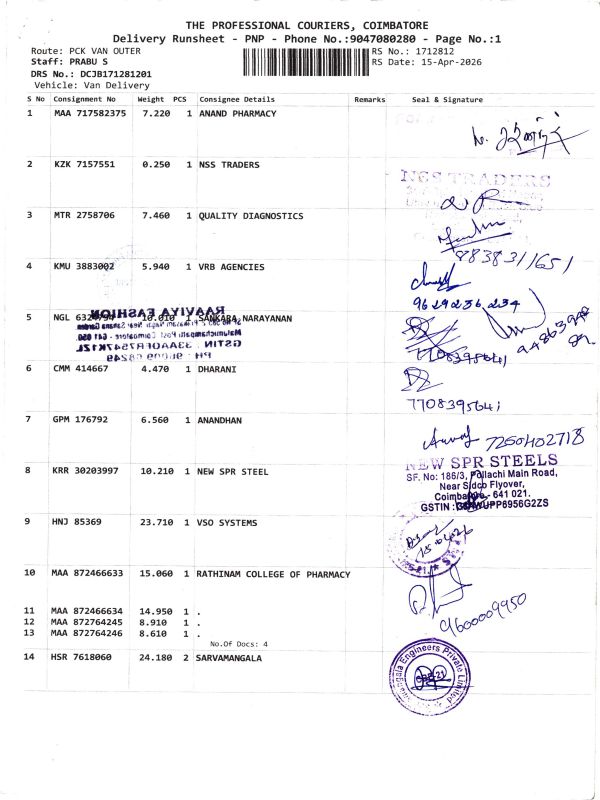 THE PROFESSIONAL COURIERS, COIMBATORE
Delivery Runsheet - PNP - Phone No.:9047080280 - Page No.:1
Route: PCK VAN OUTER RS No.: 1712812
Staff: PRABU S RS Date: 15-Apr-2026
DRS No.: DCJB171281201
Vehicle: Van Delivery
S No Consignment No Weight PCS Consignee Details Remarks Seal & Signature
1 MAA 717582375 7.220 1 ANAND PHARMACY
2 KZK 7157551 0.250 1 NSS TRADERS
NGS TRADERS
3 MTR 2758706 7.460 1 QUALITY DIAGNOSTICS
8838311651
4 KMU 3883002 5.940 1 VRB AGENCIES
9629236234
RAAVIYA FASHION
5 NGL 6324794 10.010 1 SANKARA NARAYANAN
GSTIN : 33AAOFR7547K1ZL
7708395641
6 CMM 414667 4.470 1 DHARANI
7708395641
7 GPM 176792 6.560 1 ANANDHAN
7250402718
8 KRR 30203997 10.210 1 NEW SPR STEEL
NEW SPR STEELS
SF. No: 186/3, Pollachi Main Road,
Near Sidco Flyover,
Coimbatore - 641 021.
9 HNJ 85369 23.710 1 VSO SYSTEMS
10 MAA 872466633 15.060 1 RATHINAM COLLEGE OF PHARMACY
9600009950
11 MAA 872466634 14.950 1 .
12 MAA 872764245 8.910 1 .
13 MAA 872764246 8.610 1 .
No.Of Docs: 4
14 HSR 7618060 24.180 2 SARVAMANGALA
Engineers Private Limited